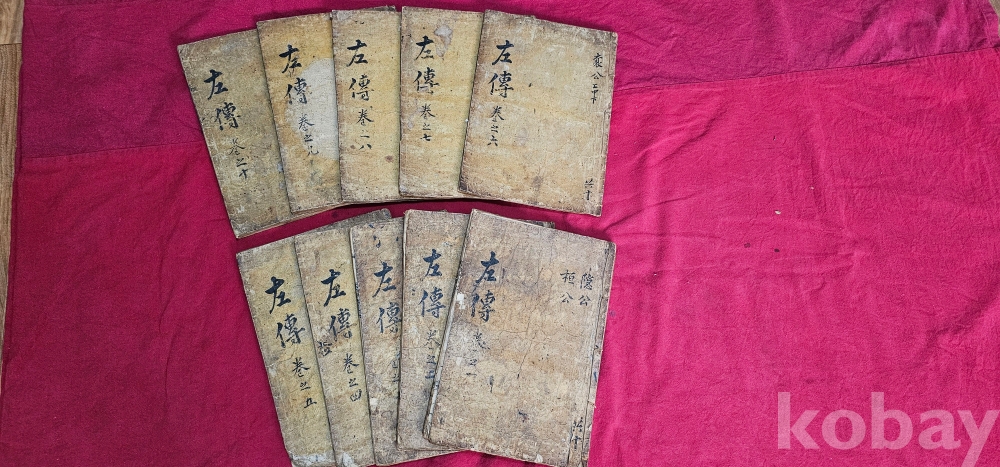 左傳 卷之十
左傳 卷之九
左傳 卷之八
左傳 卷之七
左傳 卷之六
襄公
共十
左傳 卷之五
左傳 卷之四
左傳 卷之
左傳 卷之二
左傳 卷之一
隱公
桓公
共十
kobay